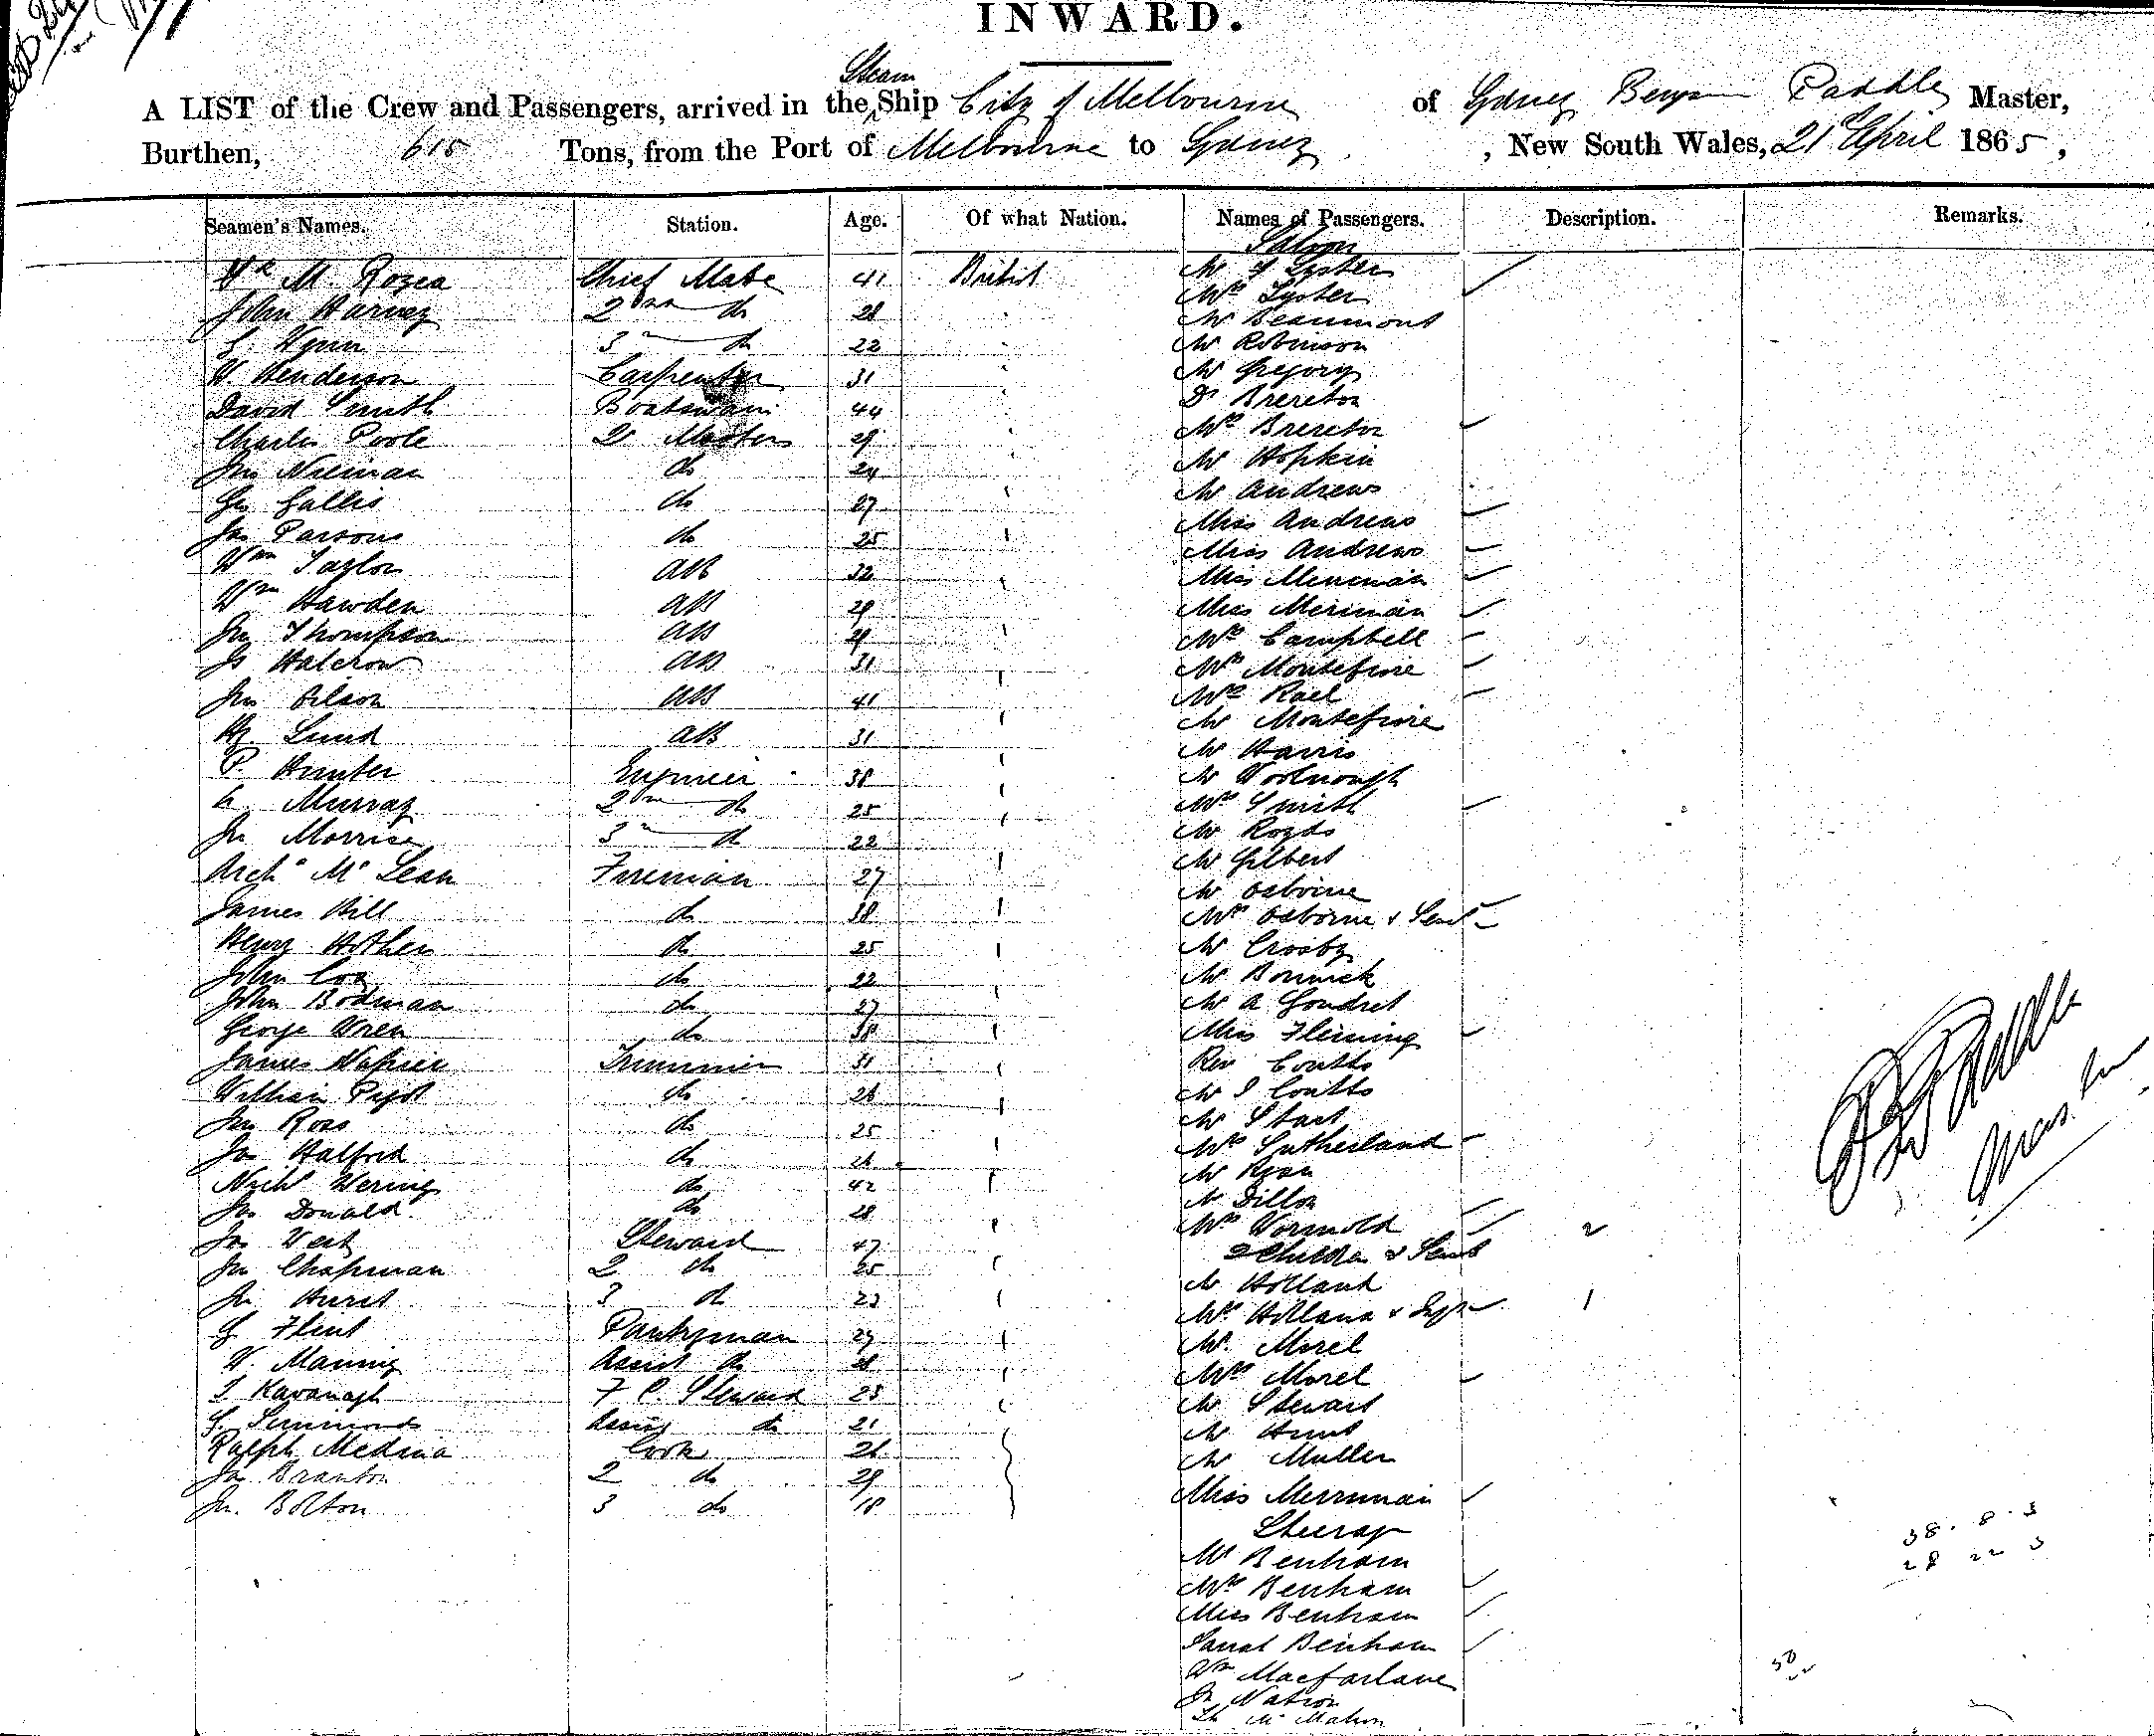 INWARD.
Steam
A LIST of the Crew and Passengers, arrived in the Ship City of Melbourne of Sydney Paddle Master,
Burthen, 615 Tons, from the Port of Melbourne to Sydney, New South Wales, 21 April 1865,
Seamen's Names. Station. Age. Of what Nation. Names of Passengers. Description. Remarks.
Saloon
M. Rozea Chief Mate 41 British Mr Lyster
Mrs Lyster
John Harvey 2nd do 28 Mr Beaumont
Wynn 3 do 22 Mr Robinson
W. Henderson Carpenter 31 Mr Gregory
David Smith Boatswain 44 Dr Brereton
Charles Poole 2 Masters 29 Mrs Brereton
Jno Nieman do 24 Mr Hopkin
Geo Gallis do 27 Mr Andrews
Jas Parsons do 25 Miss Andrews
Wm Taylor AB 32 Miss Andrews
Miss Merriman
Wm Hawden AB 29 Miss Merriman
Jno Thompson AB 29 Mrs Campbell
Js Halcrow AB 31 Mrs Montefiore
Jno AB 41 Mrs Rael
Lund AB 31 Mr Montefiore
Mr Harris
P. Hunter Engineer 38 Mr Woolnough
Murray 2nd do 25 Mrs Smith
Morrison 3 do 22 Mr Royds
Mr Gilbert
Archd McLean Fireman 27 Mr Osborne
James Bill do 38 Mrs Osborne & Servt
Henry Hother do 25 Mr Crosby
John Cox do 22 Mr Bonwick
John Bodman do 27 Mr A Goudret
George Wren do 38 Miss Fleming
James Napier Trimmer 31 Rev Coutts
William Pigot do 26 Mr J Coutts
Jno Ross do 25 Mr Start
Jas Halford do 26 Mrs Sutherland
Mr Ryan
Wering do 42 Mr Dillon
Jas Donald do 28 Mrs Wormold 2
Jas West Steward 47 2 Children & Servt
Jas Chapman 2 do 25 Mr Holland
Jno Hurst 3 do 23 Mrs Holland & Inft 1
G Flint Pantryman 29 Mr Morel
W. Manning Assist do 28 Mrs Morel
J Kavanagh F C Steward 23 Mr Stewart
G. Simmonds Assist do 21 Mr Hunt
Ralph Medina Cook 26 Mr Muller
Jas Branton 2 do 29
Jno. Bolton 3 do 18 Miss Merriman
Steerage
Mr Benham
Mrs Benham
Miss Benham
Sarah Benham
Wm Macfarlane
Jn Nation
McMahon
Paddle
Master
38 . 8 . 3
28 22 3
50